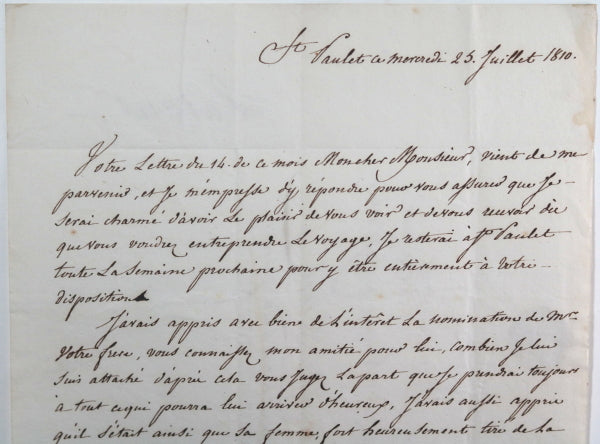 St Paulet ce mercredi 25 Juillet 1810.
Votre Lettre du 14. de ce mois Moncher Monsieur, vient de me
parvenir, et Je m'empresse d'y répondre pour vous assurer que Je
serai charmé d'avoir Le plaisir de vous voir et de vous recevoir dès
que vous voudrez entreprendre Le voyage, Je resterai à St Paulet
toute La semaine prochaine pour y être entièrement à votre
disposition
J'avais appris avec bien de L'intérêt La nomination de Mr
votre frere, vous connaissez mon amitié pour lui, combien Je lui
suis attaché d'après cela vous Jugez Lapart que Je prendrai toujours
à tout cequi pourra lui arriver d'heureux, J'avais aussi appris
qu'il s'était ainsi que sa femme, fort heureusement tiré de La